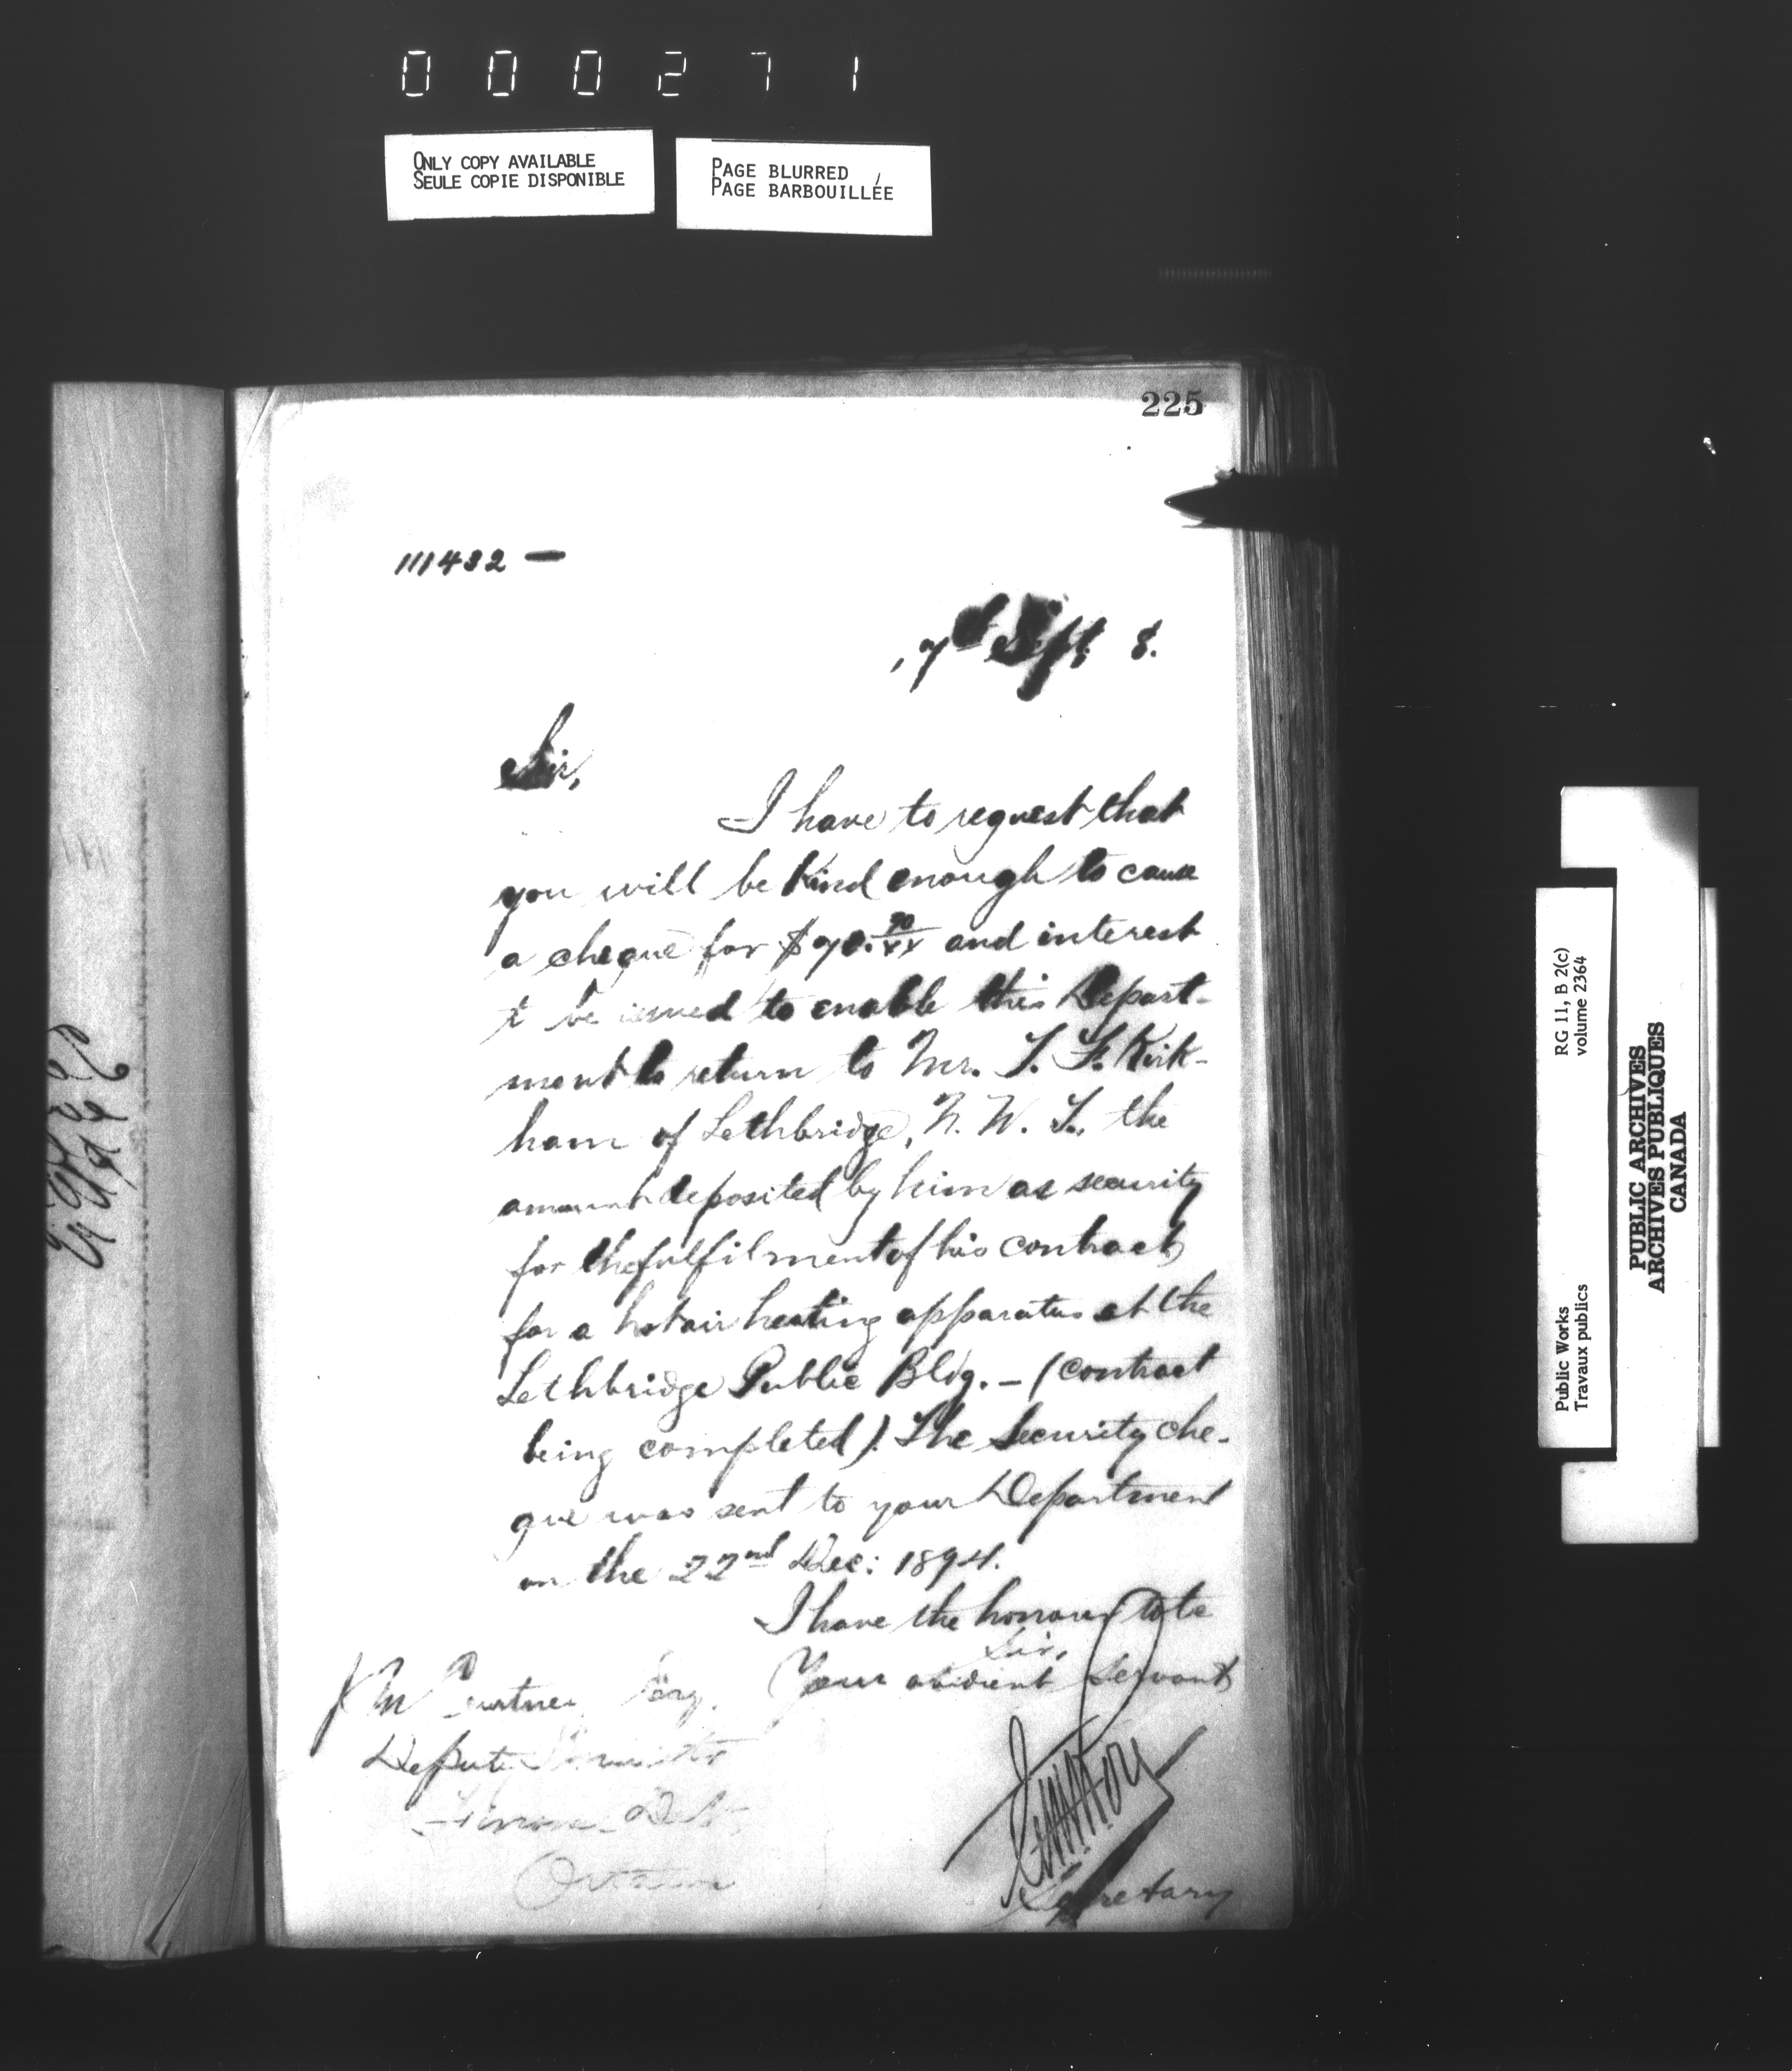 000271
ONLY COPY AVAILABLE
SEULE COPIE DISPONIBLE
PAGE BLURRED
PAGE BARBOUILLÉE
225
111432 —
Sept 8.
Sir,
I have to request that
you will be kind enough to cause
a cheque for and interest
be issued to enable this Depart-
ment to return to Mr. T. F. Kirk-
ham of Lethbridge, N. W. T., the
amount deposited by him as security
for the fulfilment of his contract
for a hot air heating apparatus at the
Lethbridge Public Bldg. – (contract
being completed). The security che-
que was sent to your Department
on the 22nd Dec: 1894.
I have the honour to be
Sir,
Your obedient Servant
J M Courtney Esq.
Deputy Minister
Finance Dept.
Ottawa
Secretary
RG 11, B 2(c)
volume 2364
Public Works
Travaux publics
PUBLIC ARCHIVES
ARCHIVES PUBLIQUES
CANADA